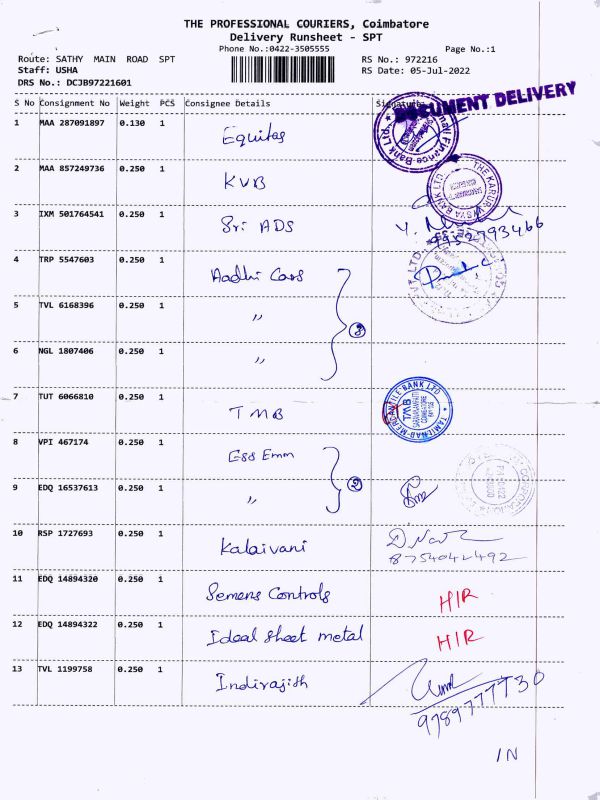 THE PROFESSIONAL COURIERS, Coimbatore
Delivery Runsheet - SPT
Phone No.:0422-3505555
Page No.:1
Route: SATHY MAIN ROAD SPT
RS No.: 972216
Staff: USHA
RS Date: 05-Jul-2022
DRS No.: DCJB97221601
S No Consignment No Weight PCS Consignee Details Signature
DOCUMENT DELIVERY
1 MAA 287091897 0.130 1 Equitas
Finance Bank Ltd.
2 MAA 857249736 0.250 1 KVB
THE KARUR VYSYA BANK LTD
3 IXM 501764541 0.250 1 Sri ADS
9952793466
4 TRP 5547603 0.250 1 Aadhi Cars
PVT LTD
5 TVL 6168396 0.250 1 "
6 NGL 1807406 0.250 1 "
7 TUT 6066810 0.250 1 TMB
TAMILNAD MERCANTILE BANK LTD
TMB
COIMBATORE
8 VPI 467174 0.250 1 Ess Emm
9 EDQ 16537613 0.250 1 "
10 RSP 1727693 0.250 1 Kalaivani
8754042492
11 EDQ 14894320 0.250 1 Semens Controls H/R
12 EDQ 14894322 0.250 1 Ideal sheet metal H/R
13 TVL 1199758 0.250 1 Indirajith
9789777730
IN